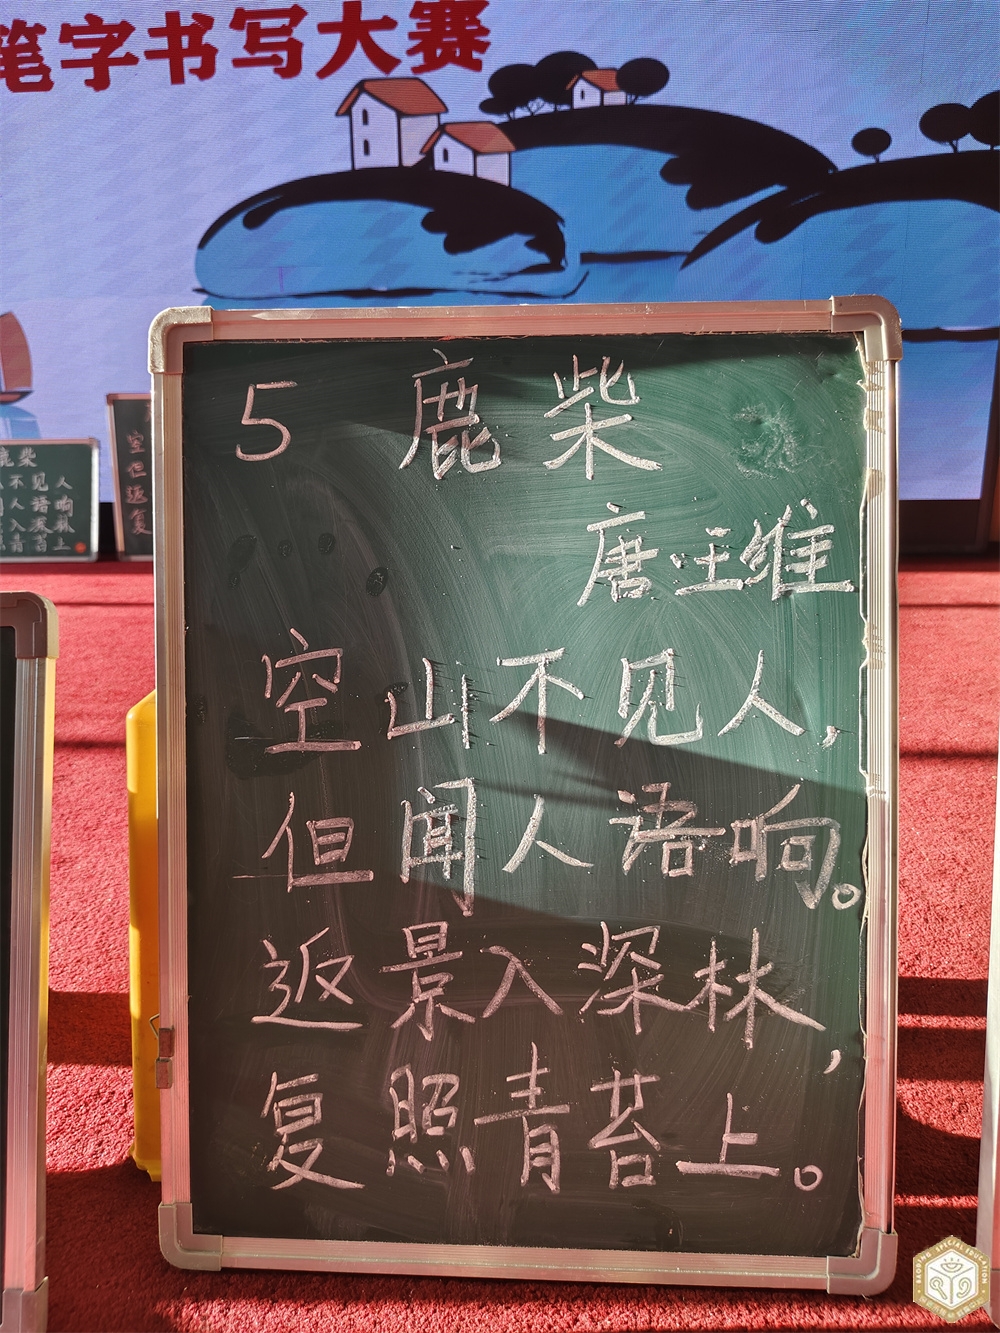 笔字书写大赛
5 鹿柴
唐·王维
空山不见人,
但闻人语响。
返景入深林,
复照青苔上。
鹿柴
不见人
人语响
入深林
青苔上
空
但
返
复
BAODING SPECIAL EDUCATION